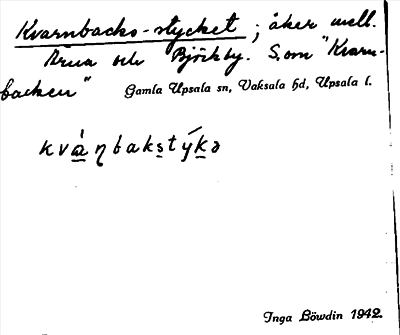 Kvarnbacks-stycket; åker mell.
Ärna och Björkby. S.om "Kvarn-
backen"
Gamla Upsala sn, Vaksala hd, Upsala l.
kvàṇbakstýkə
Inga Böwdin 1942.